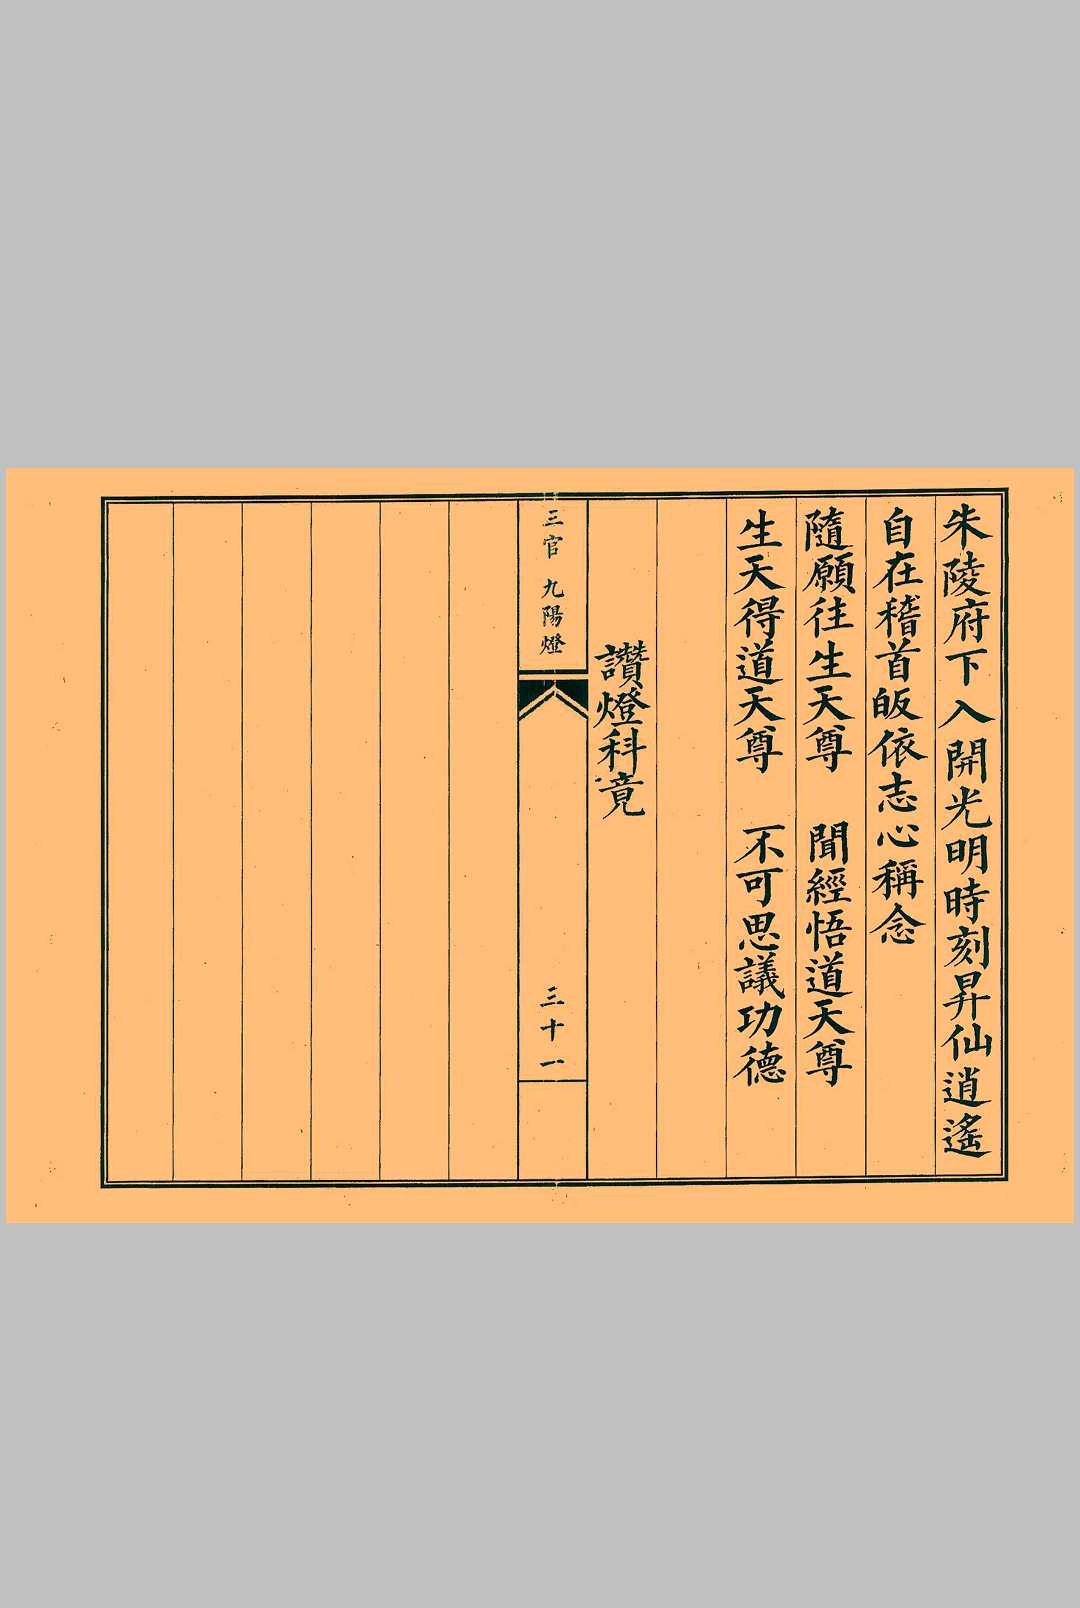 朱陵府下入開光明時刻昇仙逍遙
自在稽首皈依志心稱念
隨願往生天尊　聞經悟道天尊
生天得道天尊　不可思議功德
讚燈科竟
三官 九陽燈
三十一